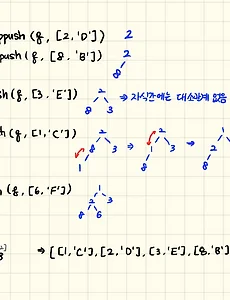 ppush (q, [2,'D'])   2
push (q, [8,'B'])   2
8
sh(q, [3,'E'])   2   ⇒ 자식간에는 대소관계 없음
8   3
h(q, [1,'C'])   2   ⇒   2   ⇒   1
8   3   1   3   2
1   8   8
(q, [6,'F'])   1
2   3
8   6
⇒ [[1,'C'], [2,'D'], [3,'E'], [8,'B']